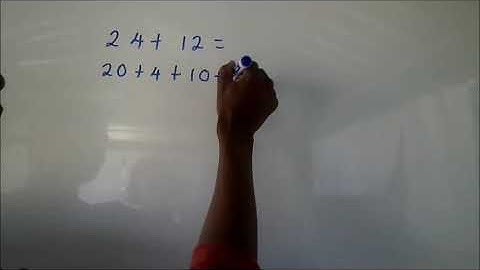 24 + 12 =
20 + 4 + 10